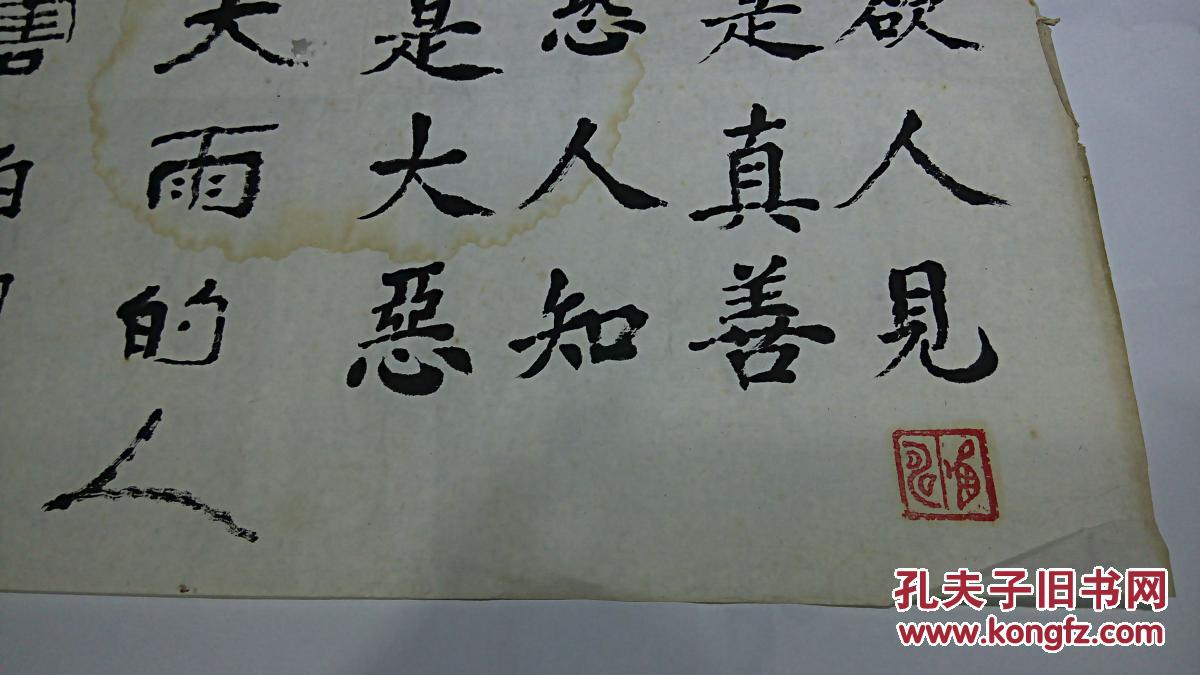 欲人見
是真善
恐人知
是大惡
大雨的人
書
孔夫子旧书网
www.kongfz.com